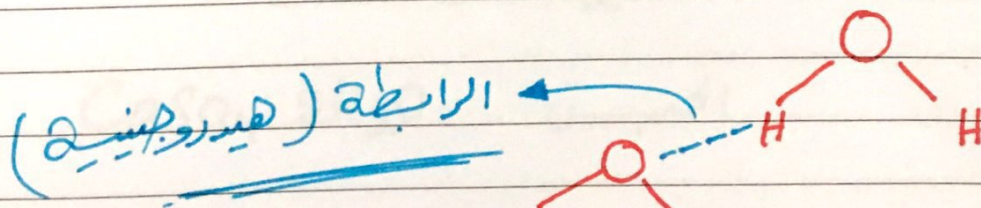 O
الرابطة (هيدروجينية)
H H
O